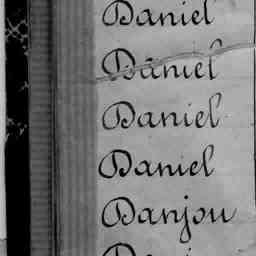 Daniel
Daniel
Daniel
Daniel
Danjou